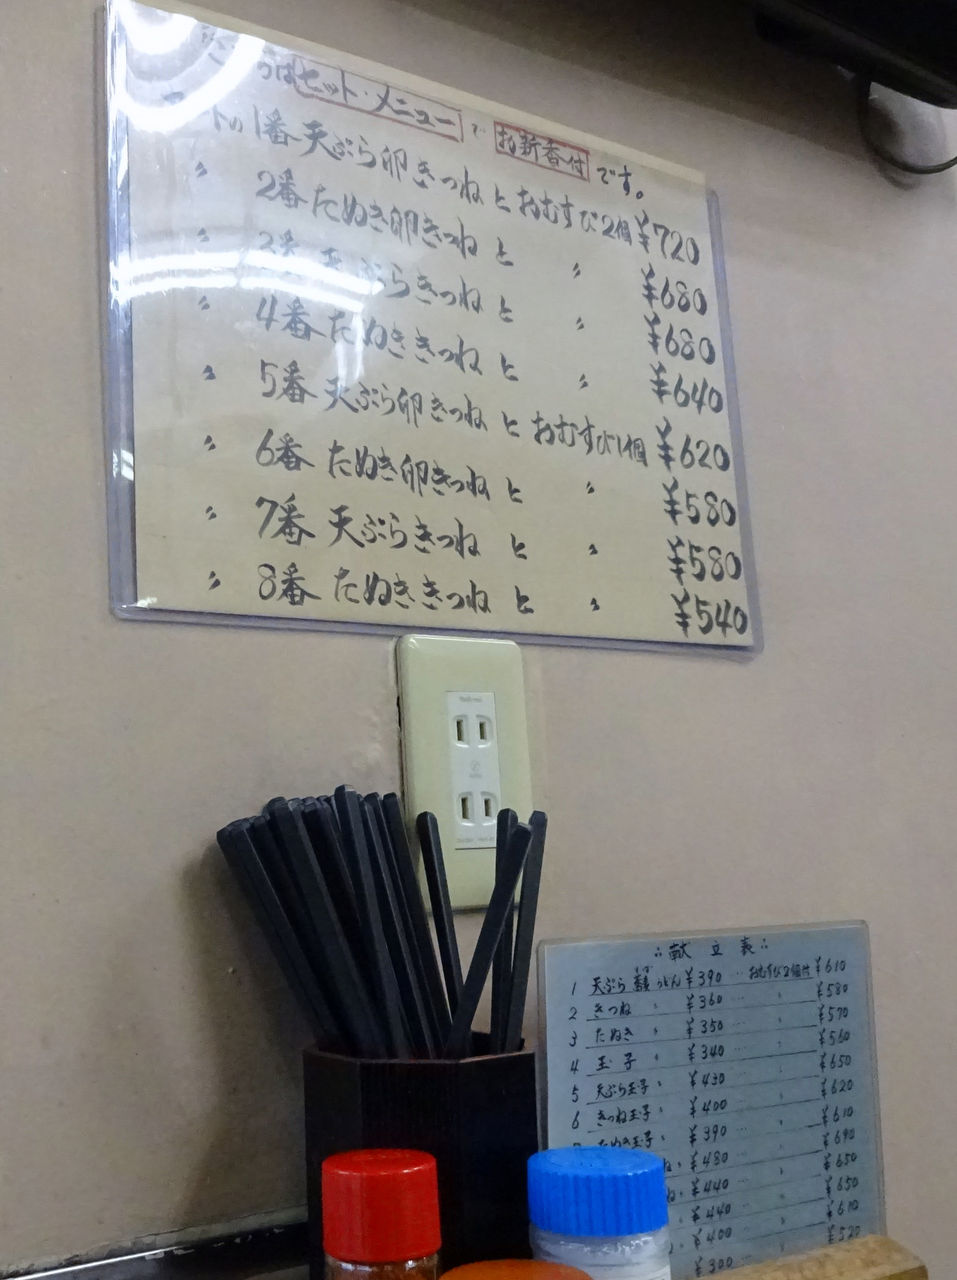 はセット・メニューで お新香付 です。
トの1番 天ぷら卵きつねとおむすび2個 ¥720
〃 2番 たぬき卵きつねと 〃 ¥680
〃 3番 天ぷらきつねと 〃 ¥680
〃 4番 たぬききつねと 〃 ¥640
〃 5番 天ぷら卵きつねとおむすび1個 ¥620
〃 6番 たぬき卵きつねと 〃 ¥580
〃 7番 天ぷらきつねと 〃 ¥580
〃 8番 たぬききつねと 〃 ¥540
∴献立表∴
1 天ぷら うどん ¥390 … おむすび2個付 ¥610
2 きつね 〃 ¥360 … 〃 ¥580
3 たぬき 〃 ¥350 … 〃 ¥570
4 玉子 〃 ¥340 … 〃 ¥560
5 天ぷら玉子 〃 ¥430 … 〃 ¥650
6 きつね玉子 〃 ¥400 … 〃 ¥620
たぬき玉子 〃 ¥390 … 〃 ¥610
ね 〃 ¥480 … 〃 ¥690
ね 〃 ¥440 … 〃 ¥650
〃 ¥440 … 〃 ¥650
¥400 … 〃 ¥610
¥300 ¥520